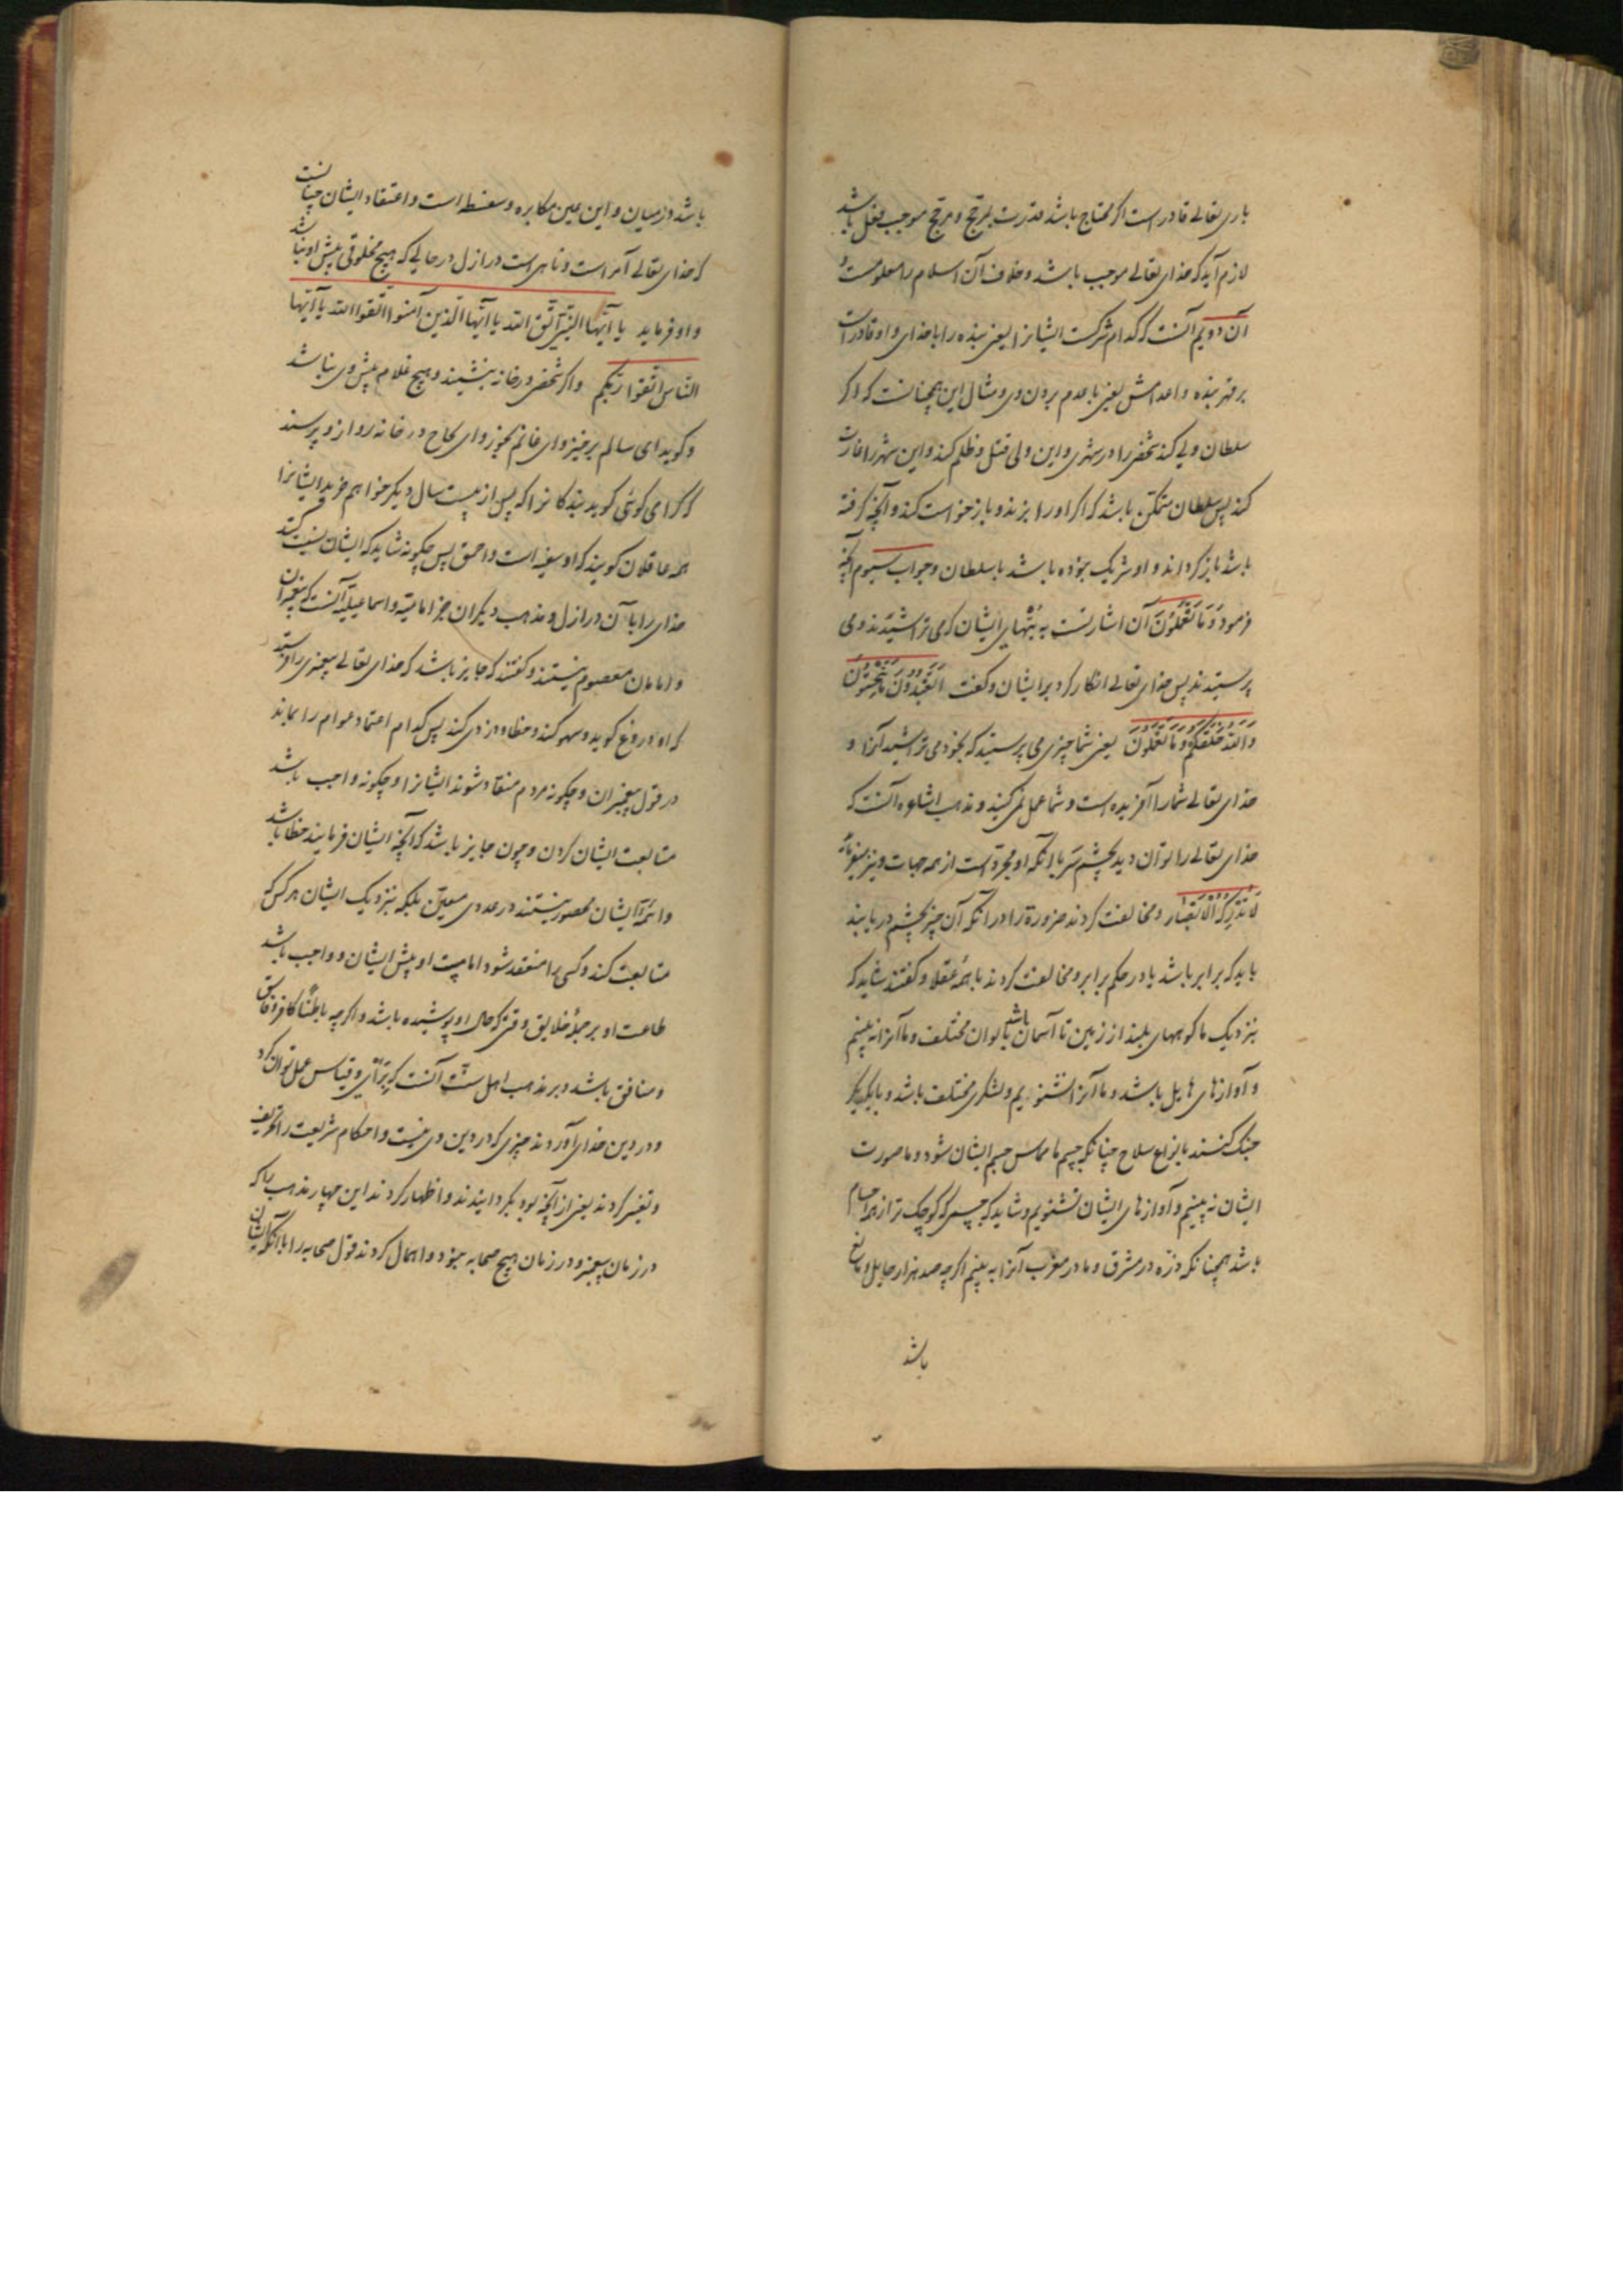 باری تعالی قادر است اگر محتاج باشد قدرت بمرجح و مرجح موجب فعل باشد
لازم آید که خدای تعالی موجب باشد و خلاف آن اسلام را معلومست و
آن دویم آنست که کدام شرکت ایشانرا یعنی بنده را با خدای و او قادر است
بر قهر بنده و اعدامش یعنی با عدم بردن وی و مثال این همچنانست که اگر
سلطان ولی کند شخصی را در شهری و این ولی قتل و ظلم کند و این شهر را غارت
کند پس سلطان متمکن باشد که اگر او را بزند و بازخواست کند و آنچه گرفته
باشد باز گرداند و او شریک نبوده باشد با سلطان و جواب سیوم آنچه
فرمود وَمَا تَعْمَلُونَ آن اشارتست به بتهای ایشان که می تراشیدند و می
پرستیدند پس خدای تعالی انکار کرد بر ایشان و گفت اَتَعْبُدُونَ مَا تَنْحِتُونَ
وَاللهُ خَلَقَكُمْ وَمَا تَعْمَلُونَ یعنی شما چیزی می پرستید که بخود می تراشید آنرا و
خدای تعالی شما را آفریده است و شما عمل نمی کنید و مذهب اشاعره آنست که
خدای تعالی را توان دید بچشم سر با آنکه او مجرد است از همه جهات و نیز میفرماید
لَا تُدْرِكُهُ الْاَبْصَار و مخالفت کردند ضرورة را در آنکه آن چیز بچشم دریابند
باید که برابر باشد یا در حکم برابر و مخالفت کردند با همه عقلا و گفتند شاید که
بنزدیک ما کوههای بلند از زمین تا آسمان باشد بالوان مختلف و ما آنرا نه بینیم
و آوازهای هایل باشد و ما آنرا نشنویم و لشکری مختلف باشد و با یکدیگر
جنگ کنند بانواع سلاح چنانکه جسم ما مماس جسم ایشان شود و ما صورت
ایشان نه بینیم و آوازهای ایشان نشنویم و شاید که جسمی که کوچک تر از همه اجسام
باشد همچنانکه ذرّه در مشرق و ما در مغرب آنرا به بینیم اگر چه صد هزار حایل و مانع
باشد
باشد در میان و این عین مکابره و سفسطه است و اعتقاد ایشان چنانست
که خدای تعالی آمر است و ناهی است در ازل در حالی که هیچ مخلوقی پیش او نباشد
و او فرماید یا اَیُّها النَّبِیّ اتَّقِ الله یا اَیُّها الَّذینَ آمَنُوا اتَّقُوا الله یا اَیُّها
النَّاسُ اتَّقُوا رَبَّكُم و اگر شخصی در خانه بنشیند و هیچ غلام پیش وی نباشد
و گوید ای سالم برخیز و ای غانم بخور و ای نجاح در خانه رو از و پرسند
که کرا می گوئی گوید بندگانرا که پس از بیست سال دیگر خواهم خرید ایشانرا
همه عاقلان گویند که او سفیه است و احمق پس چگونه شاید که ایشان نسبت کنند
خدای را با آن در ازل و مذهب دیگران جز امامیّه و اسماعیلیّه آنست که پیغمبران
و امامان معصوم نیستند و گفتند که جایز باشد که خدای تعالی پیغمبری را فرستد
که او دروغ گوید و سهو کند و خطا و دزدی کند پس کدام اعتماد عوام را بماند
در قول پیغمبران و چگونه مردم منقاد شوند ایشانرا و چگونه واجب باشد
متابعت ایشان کردن و چون جایز باشد که آنچه ایشان فرمایند خطا باشد
و ائمهٔ ایشان محصور نیستند در عددی معین بلکه بنزدیک ایشان هر کس که
متابعت کند و کسی را منعقد شود امامیت او پیش ایشان و واجب باشد
طاعت او بر جملهٔ خلایق وقتی که حال او پوشیده باشد و اگر چه باطناً کافر و فاسق
و منافق باشد و بر مذهب اهل سنّت آنست که برأی و قیاس عمل توان کرد
و در دین خدای آوردند چیزی که در دین وی نیست و احکام شریعت را تحریف
و تغییر کردند یعنی از آنچه بود بگردانیدند و اظهار کردند این چهار مذهب را که
در زمان پیغمبر و در زمان هیچ صحابه نبود و اهمال کردند قول صحابه را با آنکه ایشان